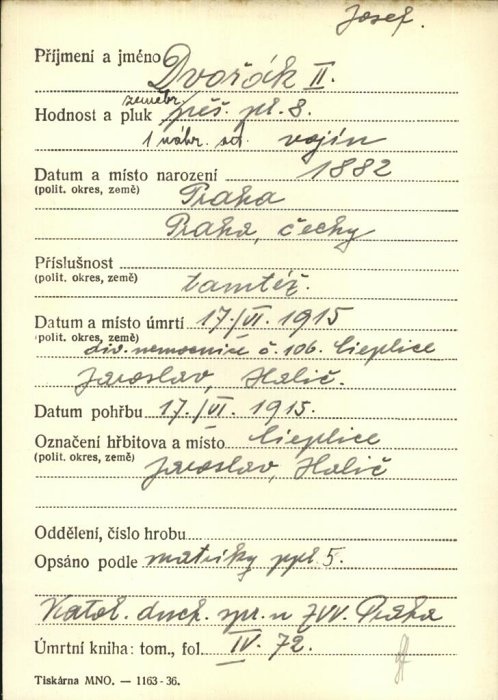 Josef.
Příjmení a jméno Dvořák II.
zeměbr.
Hodnost a pluk pěš. pl. 8.
1 náhr. set. vojín
Datum a místo narození 1882
(polit. okres, země) Praha
Praha, čechy
Příslušnost
(polit. okres, země) tamtéž.
Datum a místo úmrtí 17./VI. 1915
(polit. okres, země) div. nemocnice č. 106. Cieplice
Jaroslav, Halič.
Datum pohřbu 17./VI. 1915.
Označení hřbitova a místo Cieplice
(polit. okres, země) Jaroslav, Halič
Oddělení, číslo hrobu
Opsáno podle matriky ppl. 5.
Katol. duch. spr. u ZVV. Praha
Úmrtní kniha: tom., fol. IV. 72.
Tiskárna MNO. — 1163-36.